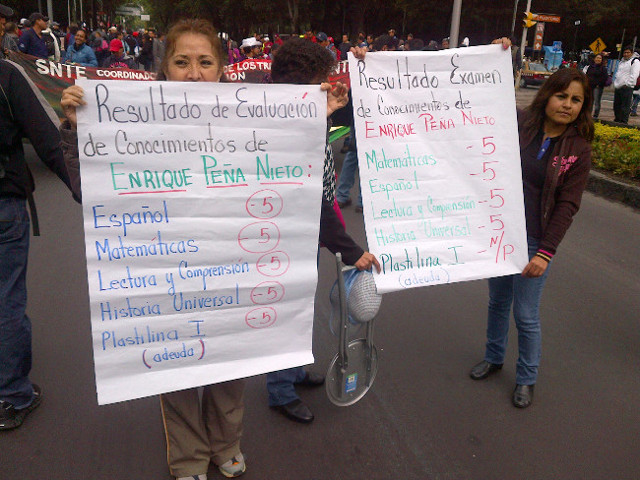 SNTE
COORDINAD
DE LOS TRA
Resultado de Evaluación
de Conocimientos de
ENRIQUE PEÑA NIETO:
Español -5
Matemáticas -5
Lectura y Comprensión -5
Historia Universal -5
Plastilina I -5
(adeuda)
Resultado Examen
de Conocimientos de
ENRIQUE PEÑA NIETO
Matemáticas -5
Español -5
Lectura y Comprensión -5
Historia Universal -5
Plastilina I - N/P
(adeuda)